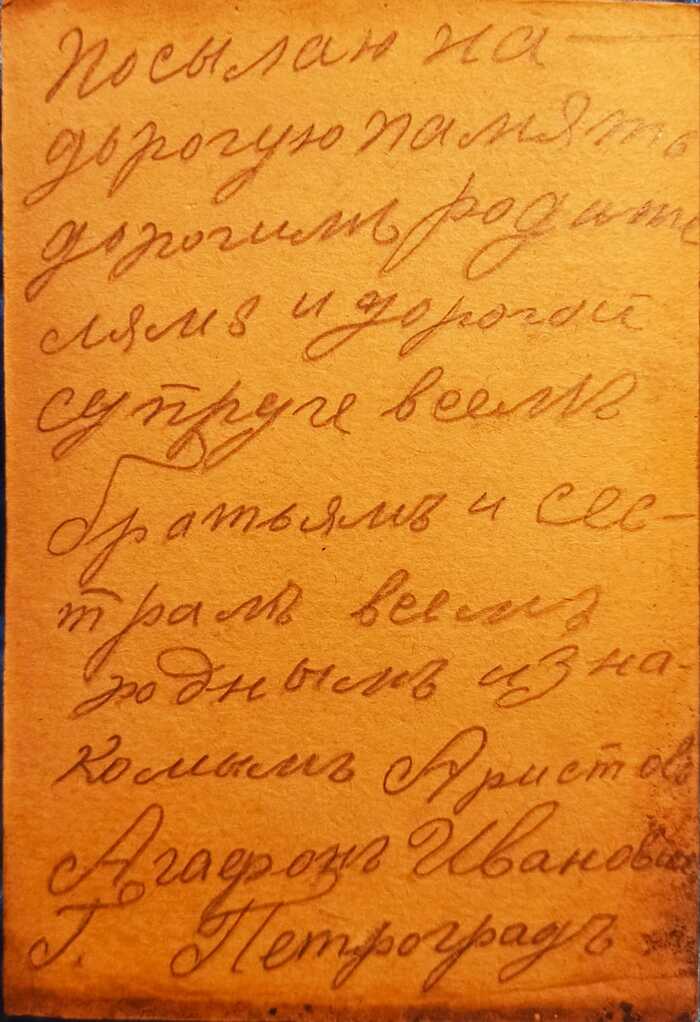 посылаю на
дорогую память
дорогимъ родите
лямъ и дорогой
супруге всемъ
братьямъ и сес-
трамъ всемъ
родным​ъ и зна-
комымъ Аристовъ
Агафонъ Иванович
Г. Петроградъ